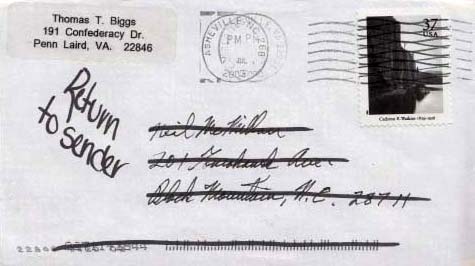 Thomas T. Biggs
191 Confederacy Dr.
Penn Laird, VA. 22846
ASHEVILLE NC 288
PM
2003
37
USA
Carleton E. Watkins 1829-1916
Return
to sender
Neil McMillan
201 Ave
Black Mountain, N.C. 28711